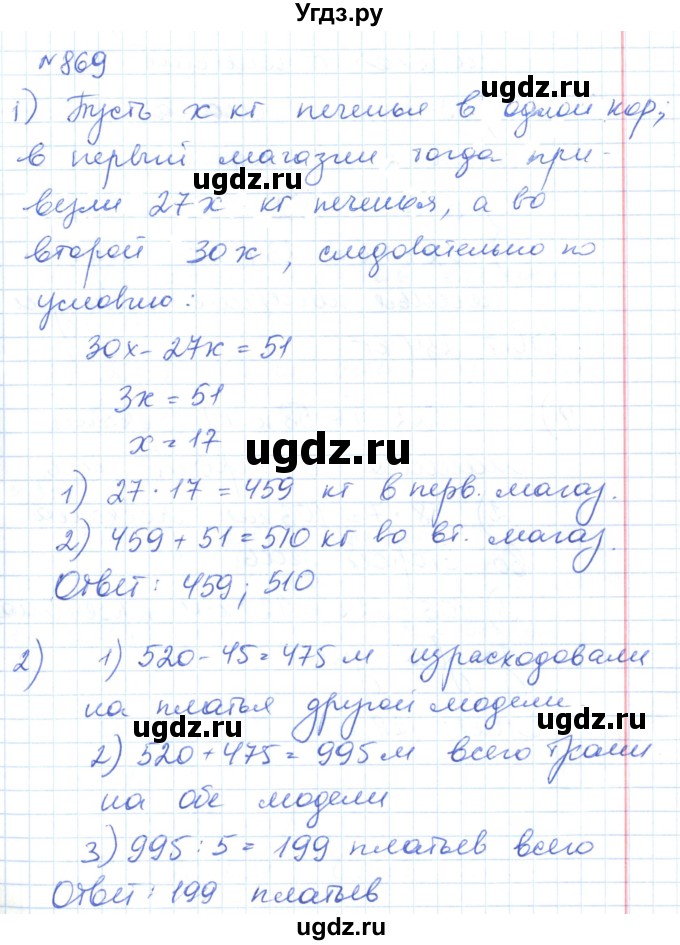 Угдз.ру
№869
ugdz.ru
1) Пусть x кг печенья в одной кор;
в первый магазин тогда при-
ugdz.ru
везли 27x кг печенья, а во
второй 30x, следовательно по
условию:
30x-27x=51
3x=51
x=17
ugdz.ru
1) 27·17=459 кг в перв. магаз.
2) 459+51=510 кг во вт. магаз.
Ответ: 459; 510
2) 1) 520-45=475 м израсходовали
на платья другой модели
ugdz.ru
ugdz.ru
2) 520+475=995 м всего ткани
на обе модели
3) 995:5=199 платьев всего
Ответ: 199 платьев
ugdz.ru